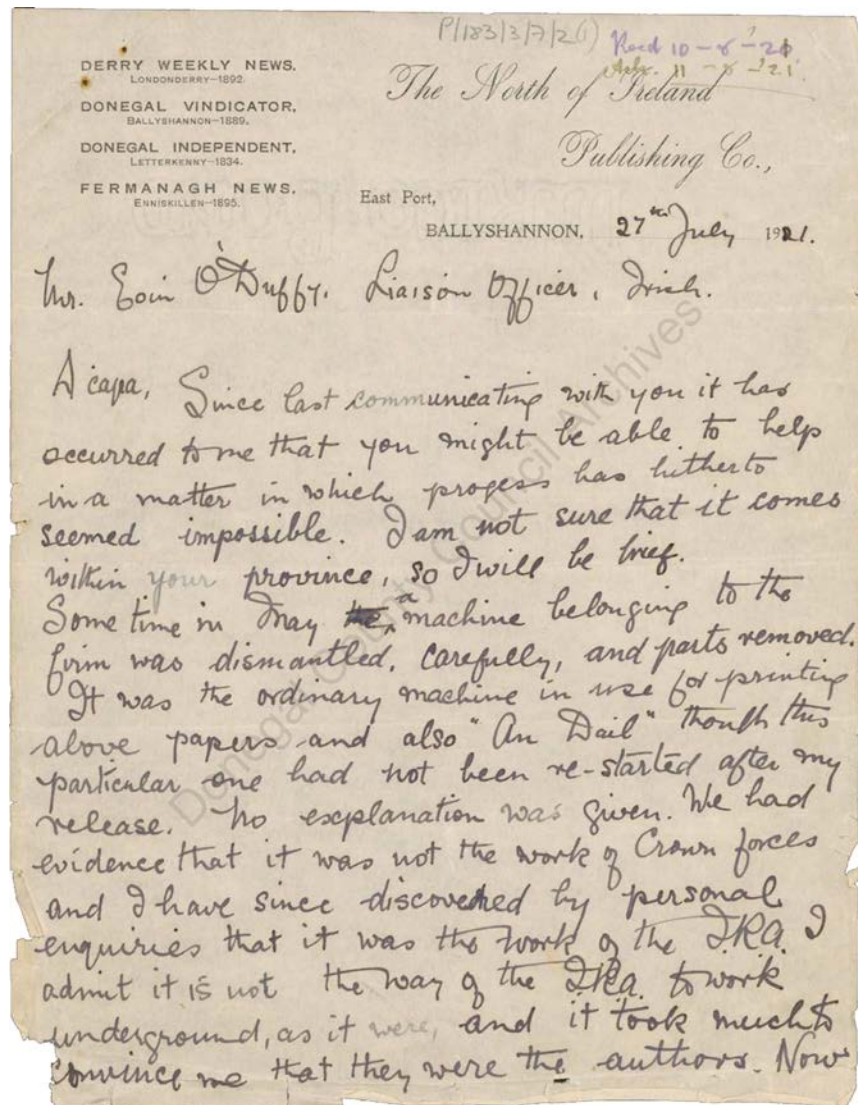 P/183/3/7/2(1)
Recd 10-8-'21
11-8-'21.
DERRY WEEKLY NEWS.
LONDONDERRY—1892.
DONEGAL VINDICATOR,
BALLYSHANNON—1889.
DONEGAL INDEPENDENT,
LETTERKENNY—1834.
FERMANAGH NEWS,
ENNISKILLEN—1895.
The North of Ireland
Publishing Co.,
East Port,
BALLYSHANNON, 27th July 1921.
Mr. Eoin O'Duffy. Liaison Officer, Irish.
A cara, Since last communicating with you it has
occurred to me that you might be able to help
in a matter in which progess has hitherto
seemed impossible. I am not sure that it comes
within your province, so I will be brief.
Some time in May a machine belonging to the
firm was dismantled, carefully, and parts removed.
It was the ordinary machine in use for printing
above papers and also "An Dail" though this
particular one had not been re-started after my
release. No explanation was given. We had
evidence that it was not the work of Crown forces
and I have since discovered by personal
enquiries that it was the work of the I.R.A. I
admit it is not the way of the I.R.A. to work
underground, as it were, and it took much to
convince me that they were the authors. Now
Donegal County Council Archives